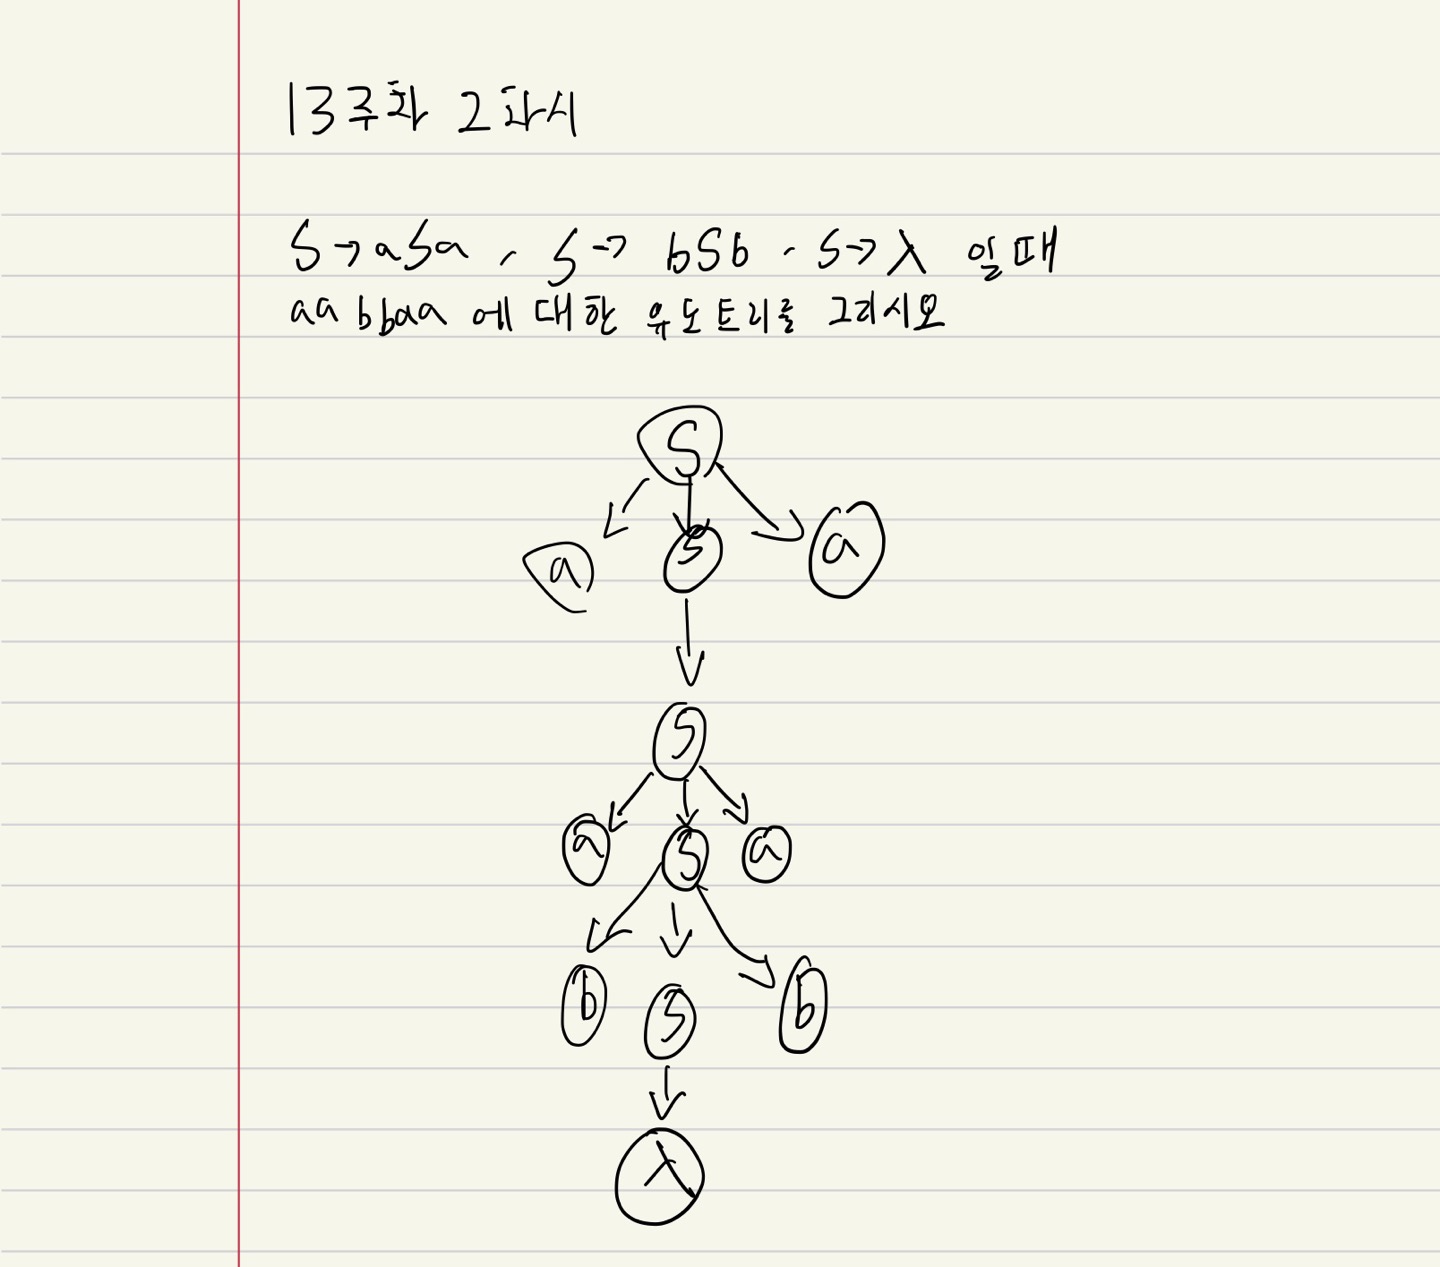 13주차 2차시
S→aSa, S→ bSb, S→λ 일때
aabbaa 에 대한 유도트리를 그리시오
S
a S a
S
a S a
b S b
λ